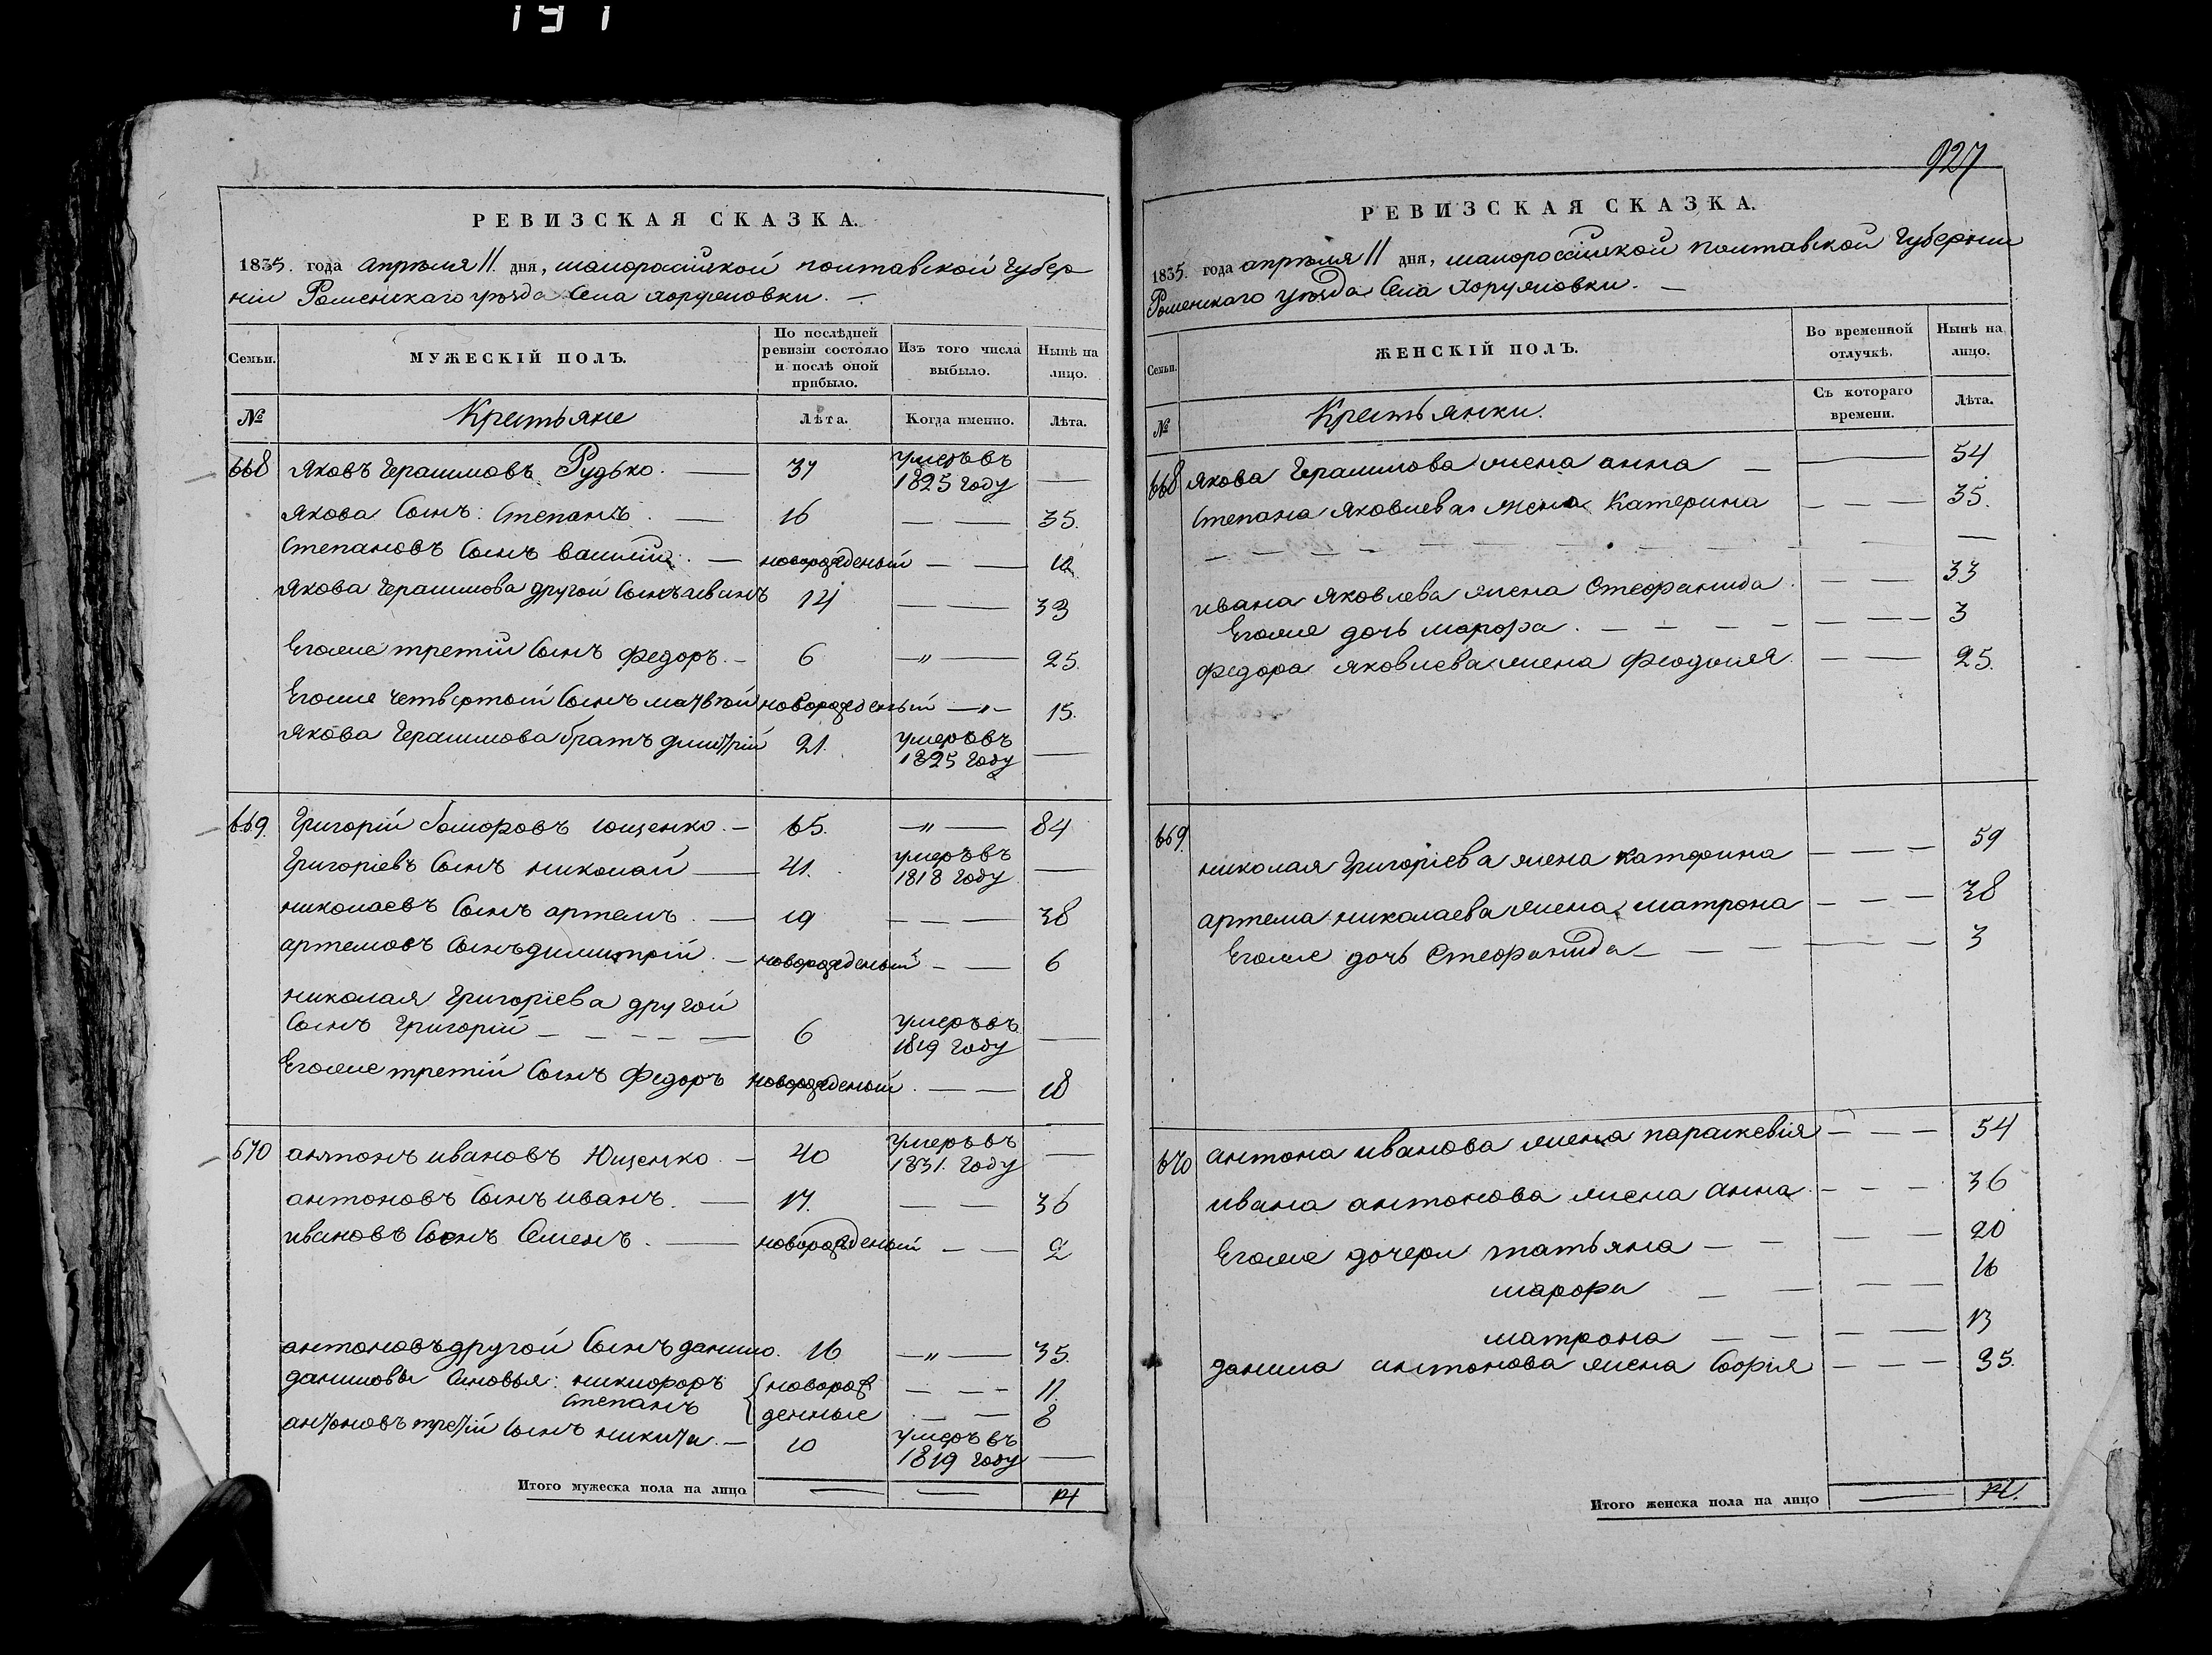 РЕВИЗСКАЯ СКАЗКА.
1835. года апрѣля 11. дня, малоросійской полтавской губер
ніи Роменскаго уѣзда села хоружовки. —
Семьи. МУЖЕСКІЙ ПОЛЪ. По послѣдней ревизіи состояло и послѣ оной прибыло. Изъ того числа выбыло. Нынѣ на лицо.
№ Крестьяне Лѣта. Когда именно. Лѣта.
668 Яковъ Герасимовъ Рудько. — 37 умеръ въ 1825 году —
якова сынъ: степанъ. — 16 — — 35.
степановъ сынъ василій. — новорожденый — — 12
якова Герасимова другой сынъ иванъ 14 — — 33
Егоже третій сынъ федоръ. — 6 —„— 25.
Егоже четвертый сынъ матвѣй новорожденый —„— 15.
якова Герасимова братъ димитрій 21. умеръ въ 1825 году —
669. Григорій Ющенко. — 65. —„— 84
Григоріевъ сынъ николай — 41. умеръ въ 1818 году —
николаевъ сынъ артемъ. — 19 — — — 38
артемовъ сынъ димитрій. — новорожденый — — 6
николая Григоріева другой
сынъ Григорій — — — — — 6 умеръ въ 1819 году —
Егоже третій сынъ Федоръ новорожденый. — — 18
670 антонъ ивановъ Ющенко. — 40 умеръ въ 1831. году —
антоновъ сынъ иванъ. — 17. — — 36
ивановъ сынъ семенъ. — новорожденый — — 2
антоновъ другой сынъ данило. 16 —„— 35.
даниловы сыновья: никифоръ {новорож — — — 11.
степанъ денные — — 8
антоновъ третій сынъ никита. — 10 умеръ въ 1819 году —
Итого мужеска пола на лицо — — 14
927
РЕВИЗСКАЯ СКАЗКА.
1835. года апрѣля 11 дня, малоросс­ійской полтавской губерніи
Роменскаго уѣзда села хоружовки. —
Семьи. ЖЕНСКІЙ ПОЛЪ. Во временной отлучкѣ. Нынѣ на лицо.
№ Крестьянки. Съ котораго времени. Лѣта.
668 якова Герасимова жена анна — — 54
степана яковлева жена Катерина — — 35.
ивана яковлева жена стефанида. — — 33
Егоже дочь марфа. — — — — — — — 3
федора яковлева жена феодосія. — — 25.
669. николая Григоріева жена катерина — — — 59
артема николаева жена матрона — — — 38
Егоже дочь стефанида — — — — — 3
670 антона иванова жена параскевія — — — 54
ивана антонова жена анна. — — — 36
Егоже дочери татьяна — — — — 20
марфа — — — — 16
матрона — — — — 13
данила антонова жена софія — — — 35.
Итого женска пола на лицо — 12.